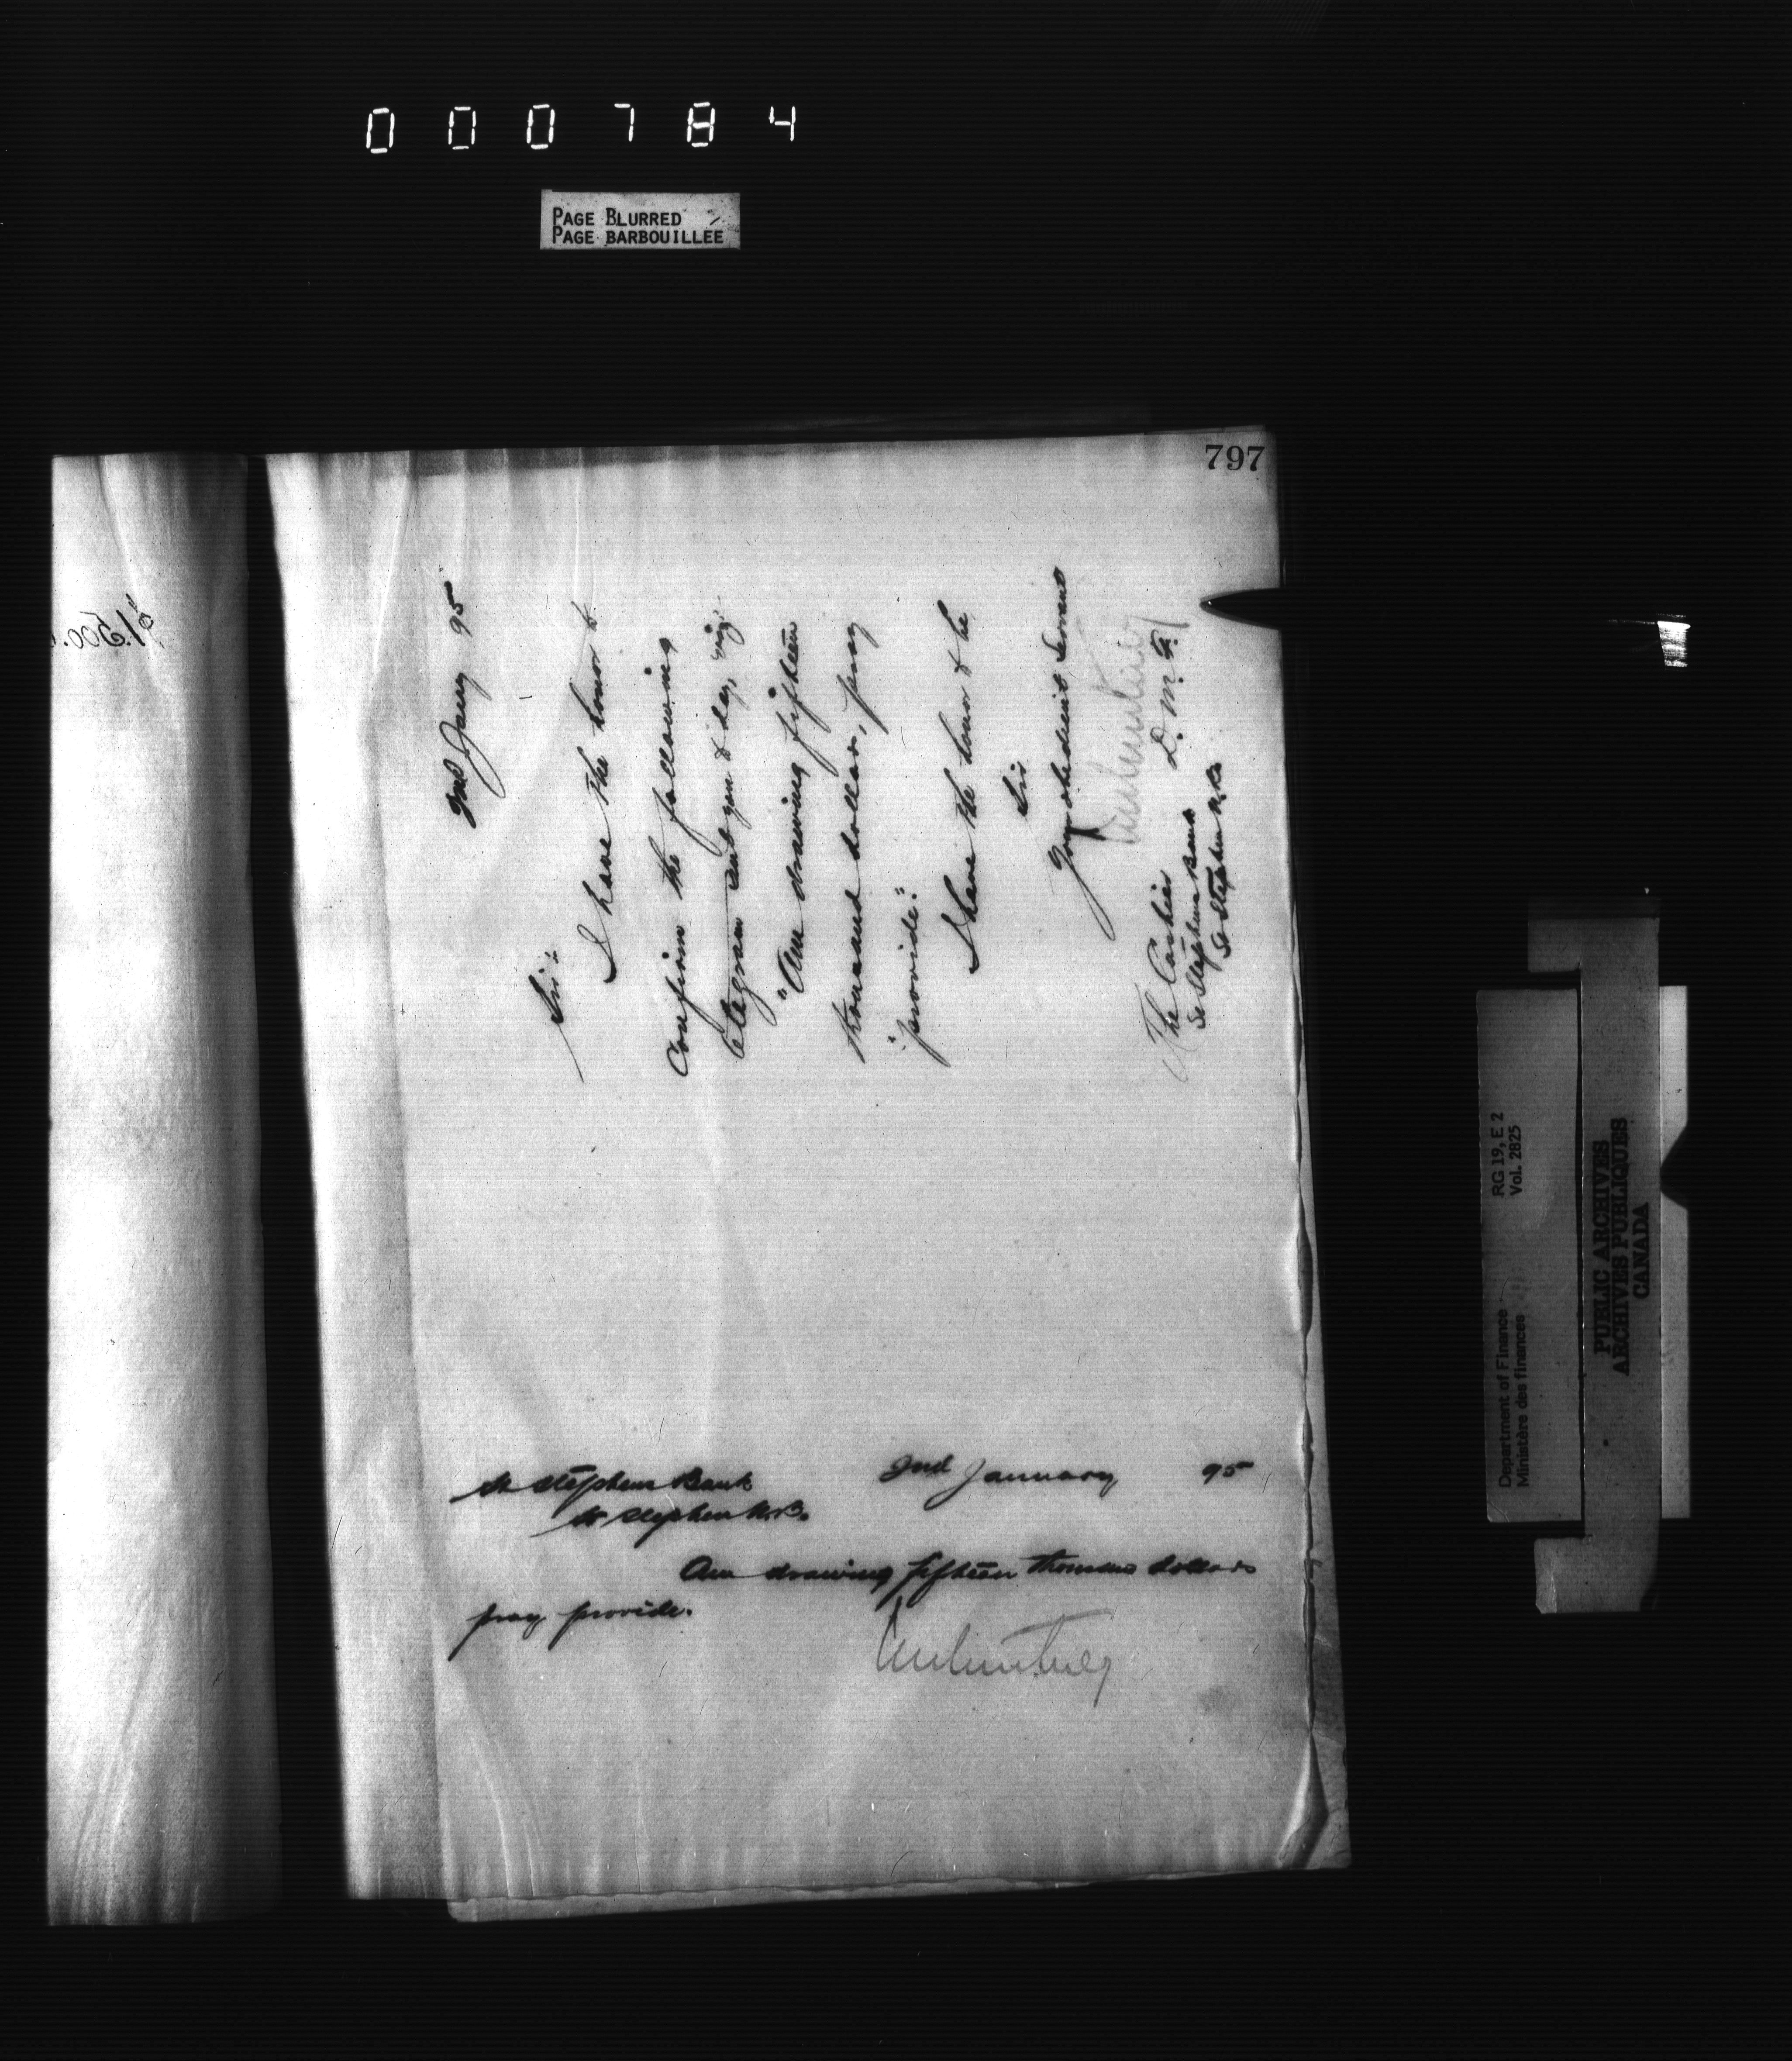 000784
PAGE BLURRED
PAGE BARBOUILLÉE
797
2nd Jany 95
Sir:
I have the honor to
confirm the following
telegram sent you to day, viz:
"Am drawing fifteen
thousand dollars, pray
"provide."
I have the honor to be
Sir
Your obedient Servant
D. M. F.
The Cashier
St Stephens Bank
St Stephen N.B.
St Stephens Bank 2nd January 95
St Stephen N.B.
Am drawing fifteen thousand dollars
pray provide.
RG 19, E 2
Vol. 2825
Department of Finance
Ministère des finances
PUBLIC ARCHIVES
ARCHIVES PUBLIQUES
CANADA